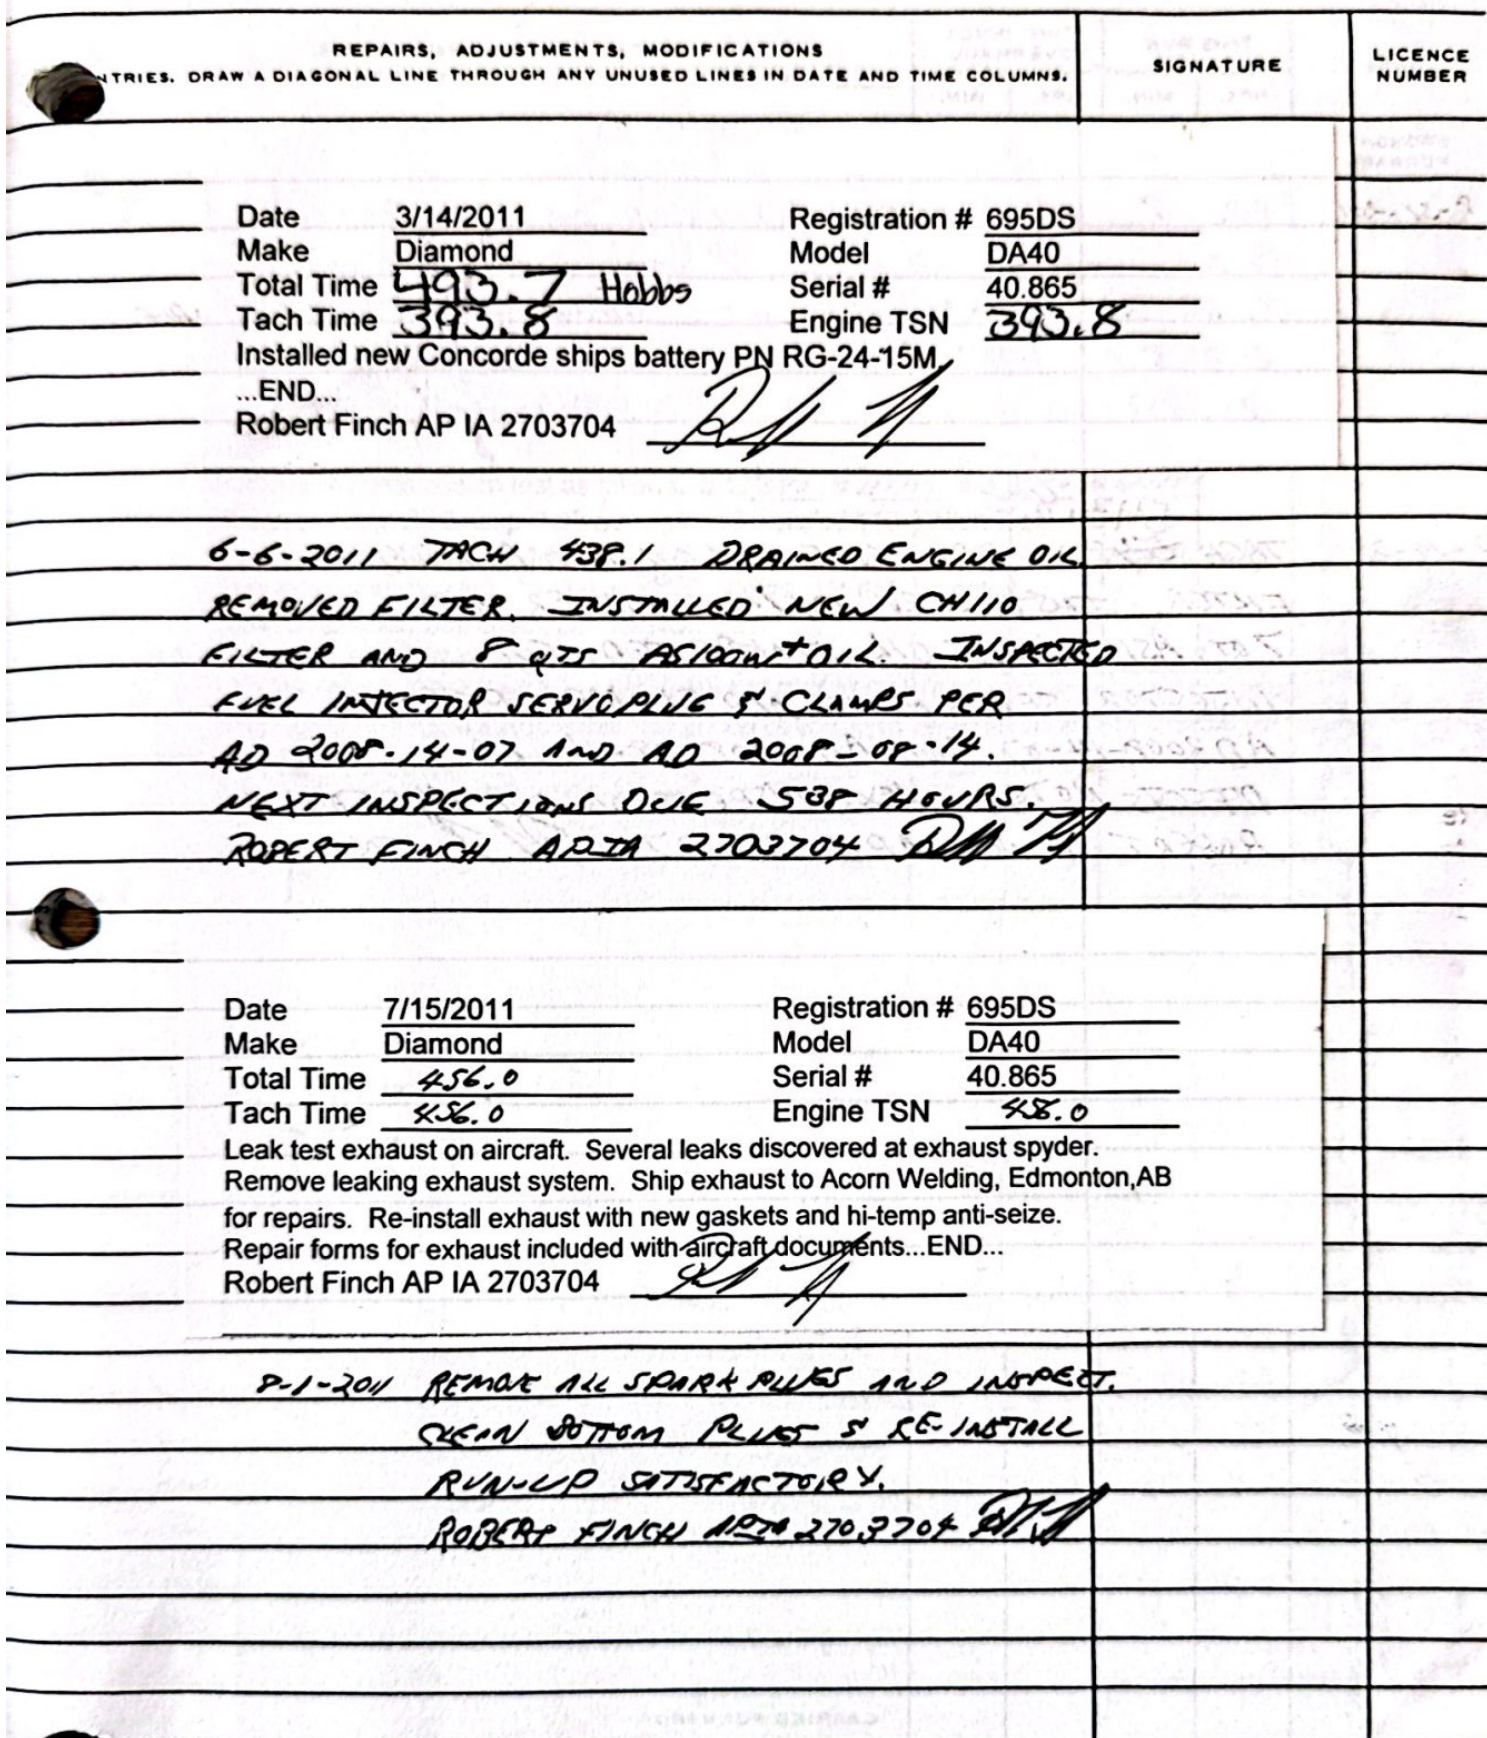 REPAIRS, ADJUSTMENTS, MODIFICATIONS
NTRIES. DRAW A DIAGONAL LINE THROUGH ANY UNUSED LINES IN DATE AND TIME COLUMNS.
SIGNATURE
LICENCE NUMBER
Date 3/14/2011 Registration # 695DS
Make Diamond Model DA40
Total Time 493.7 Hobbs Serial # 40.865
Tach Time 393.8 Engine TSN 393.8
Installed new Concorde ships battery PN RG-24-15M.
...END...
Robert Finch AP IA 2703704
6-6-2011 TACH 438.1 DRAINED ENGINE OIL
REMOVED FILTER. INSTALLED NEW CH110
FILTER AND 8 QTS AS100W+ OIL. INSPECTED
FUEL INJECTOR SERVO PLUG & CLAMPS PER
AD 2008-14-07 AND AD 2008-08-14.
NEXT INSPECTIONS DUE 538 HOURS.
ROBERT FINCH APIA 2703704
Date 7/15/2011 Registration # 695DS
Make Diamond Model DA40
Total Time 456.0 Serial # 40.865
Tach Time 456.0 Engine TSN 456.0
Leak test exhaust on aircraft. Several leaks discovered at exhaust spyder.
Remove leaking exhaust system. Ship exhaust to Acorn Welding, Edmonton,AB
for repairs. Re-install exhaust with new gaskets and hi-temp anti-seize.
Repair forms for exhaust included with aircraft documents...END...
Robert Finch AP IA 2703704
8-1-2011 REMOVE ALL SPARK PLUGS AND INSPECT.
CLEAN BOTTOM PLUGS & RE-INSTALL
RUN-UP SATISFACTORY.
ROBERT FINCH APIA 2703704